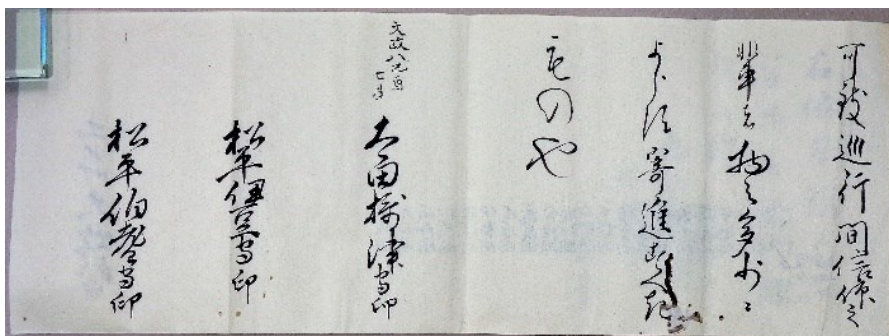 可致巡行間信仰之
輩者物之多少ニ
よらす寄進すへき
もの也
文政八乙酉
七月
太田摂津守印
松平伊豆守印
松平伯耆守印